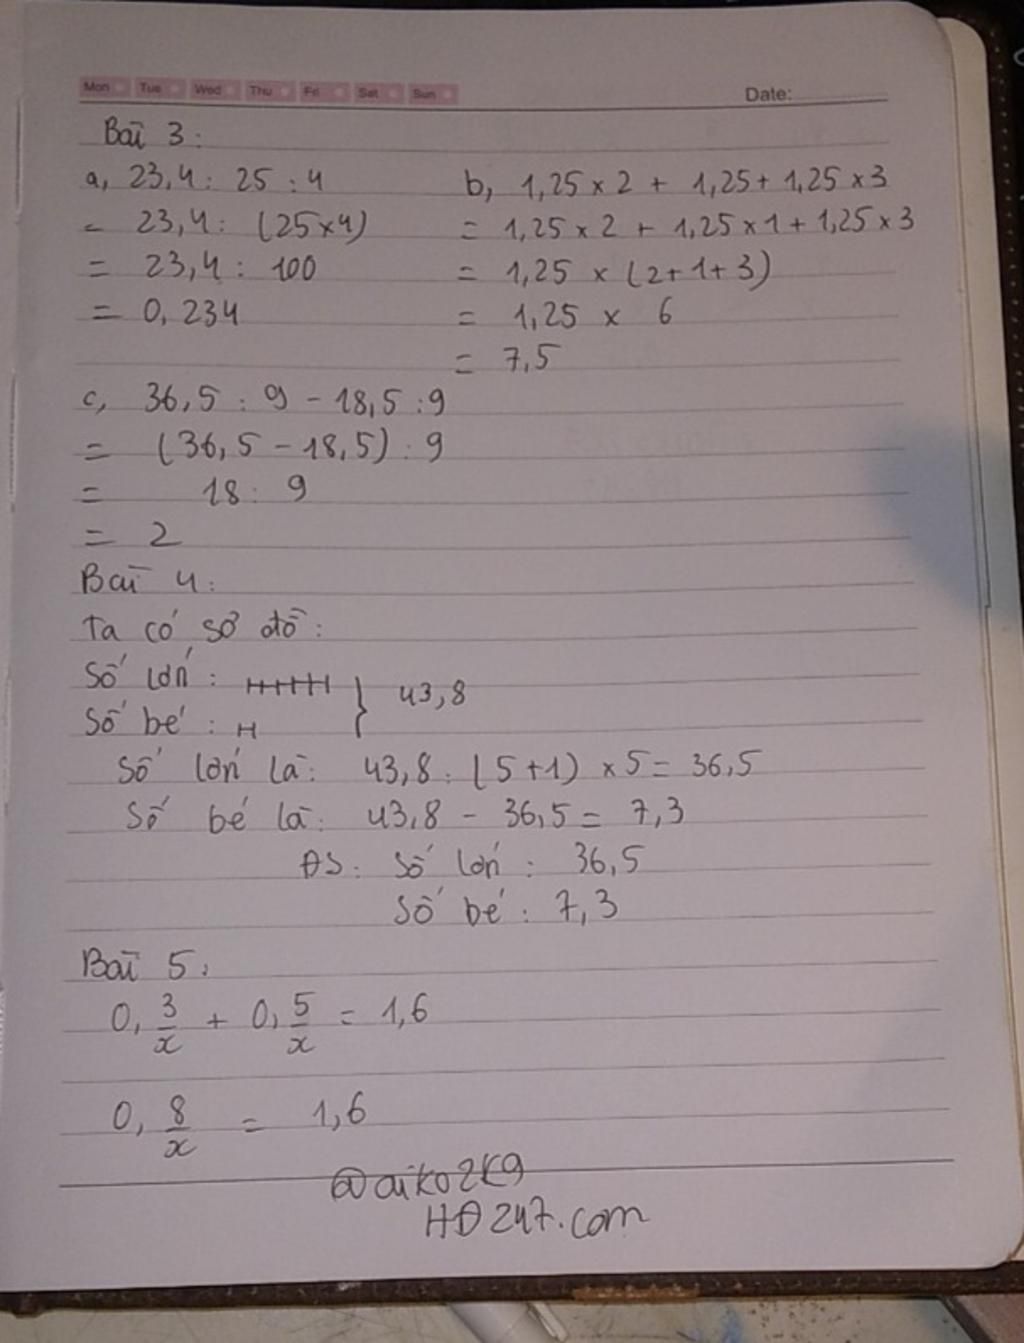 Mon Tue Wed Thu Fri Sat Sun Date:
Bài 3:
a, 23,4 : 25 : 4
= 23,4 : (25×4)
= 23,4 : 100
= 0,234
b, 1,25 × 2 + 1,25 + 1,25 × 3
= 1,25 × 2 + 1,25 × 1 + 1,25 × 3
= 1,25 × (2+1+3)
= 1,25 × 6
= 7,5
c, 36,5 : 9 - 18,5 : 9
= (36,5 - 18,5) : 9
= 18 : 9
= 2
Bài 4:
Ta có sơ đồ:
Số lớn :
Số bé : } 43,8
Số lớn là: 43,8 : (5+1) × 5 = 36,5
Số bé là: 43,8 - 36,5 = 7,3
ĐS: Số lớn : 36,5
Số bé : 7,3
Bài 5:
0, 3/x + 0, 5/x = 1,6
0, 8/x = 1,6
@aiko2K9
HĐ247.com